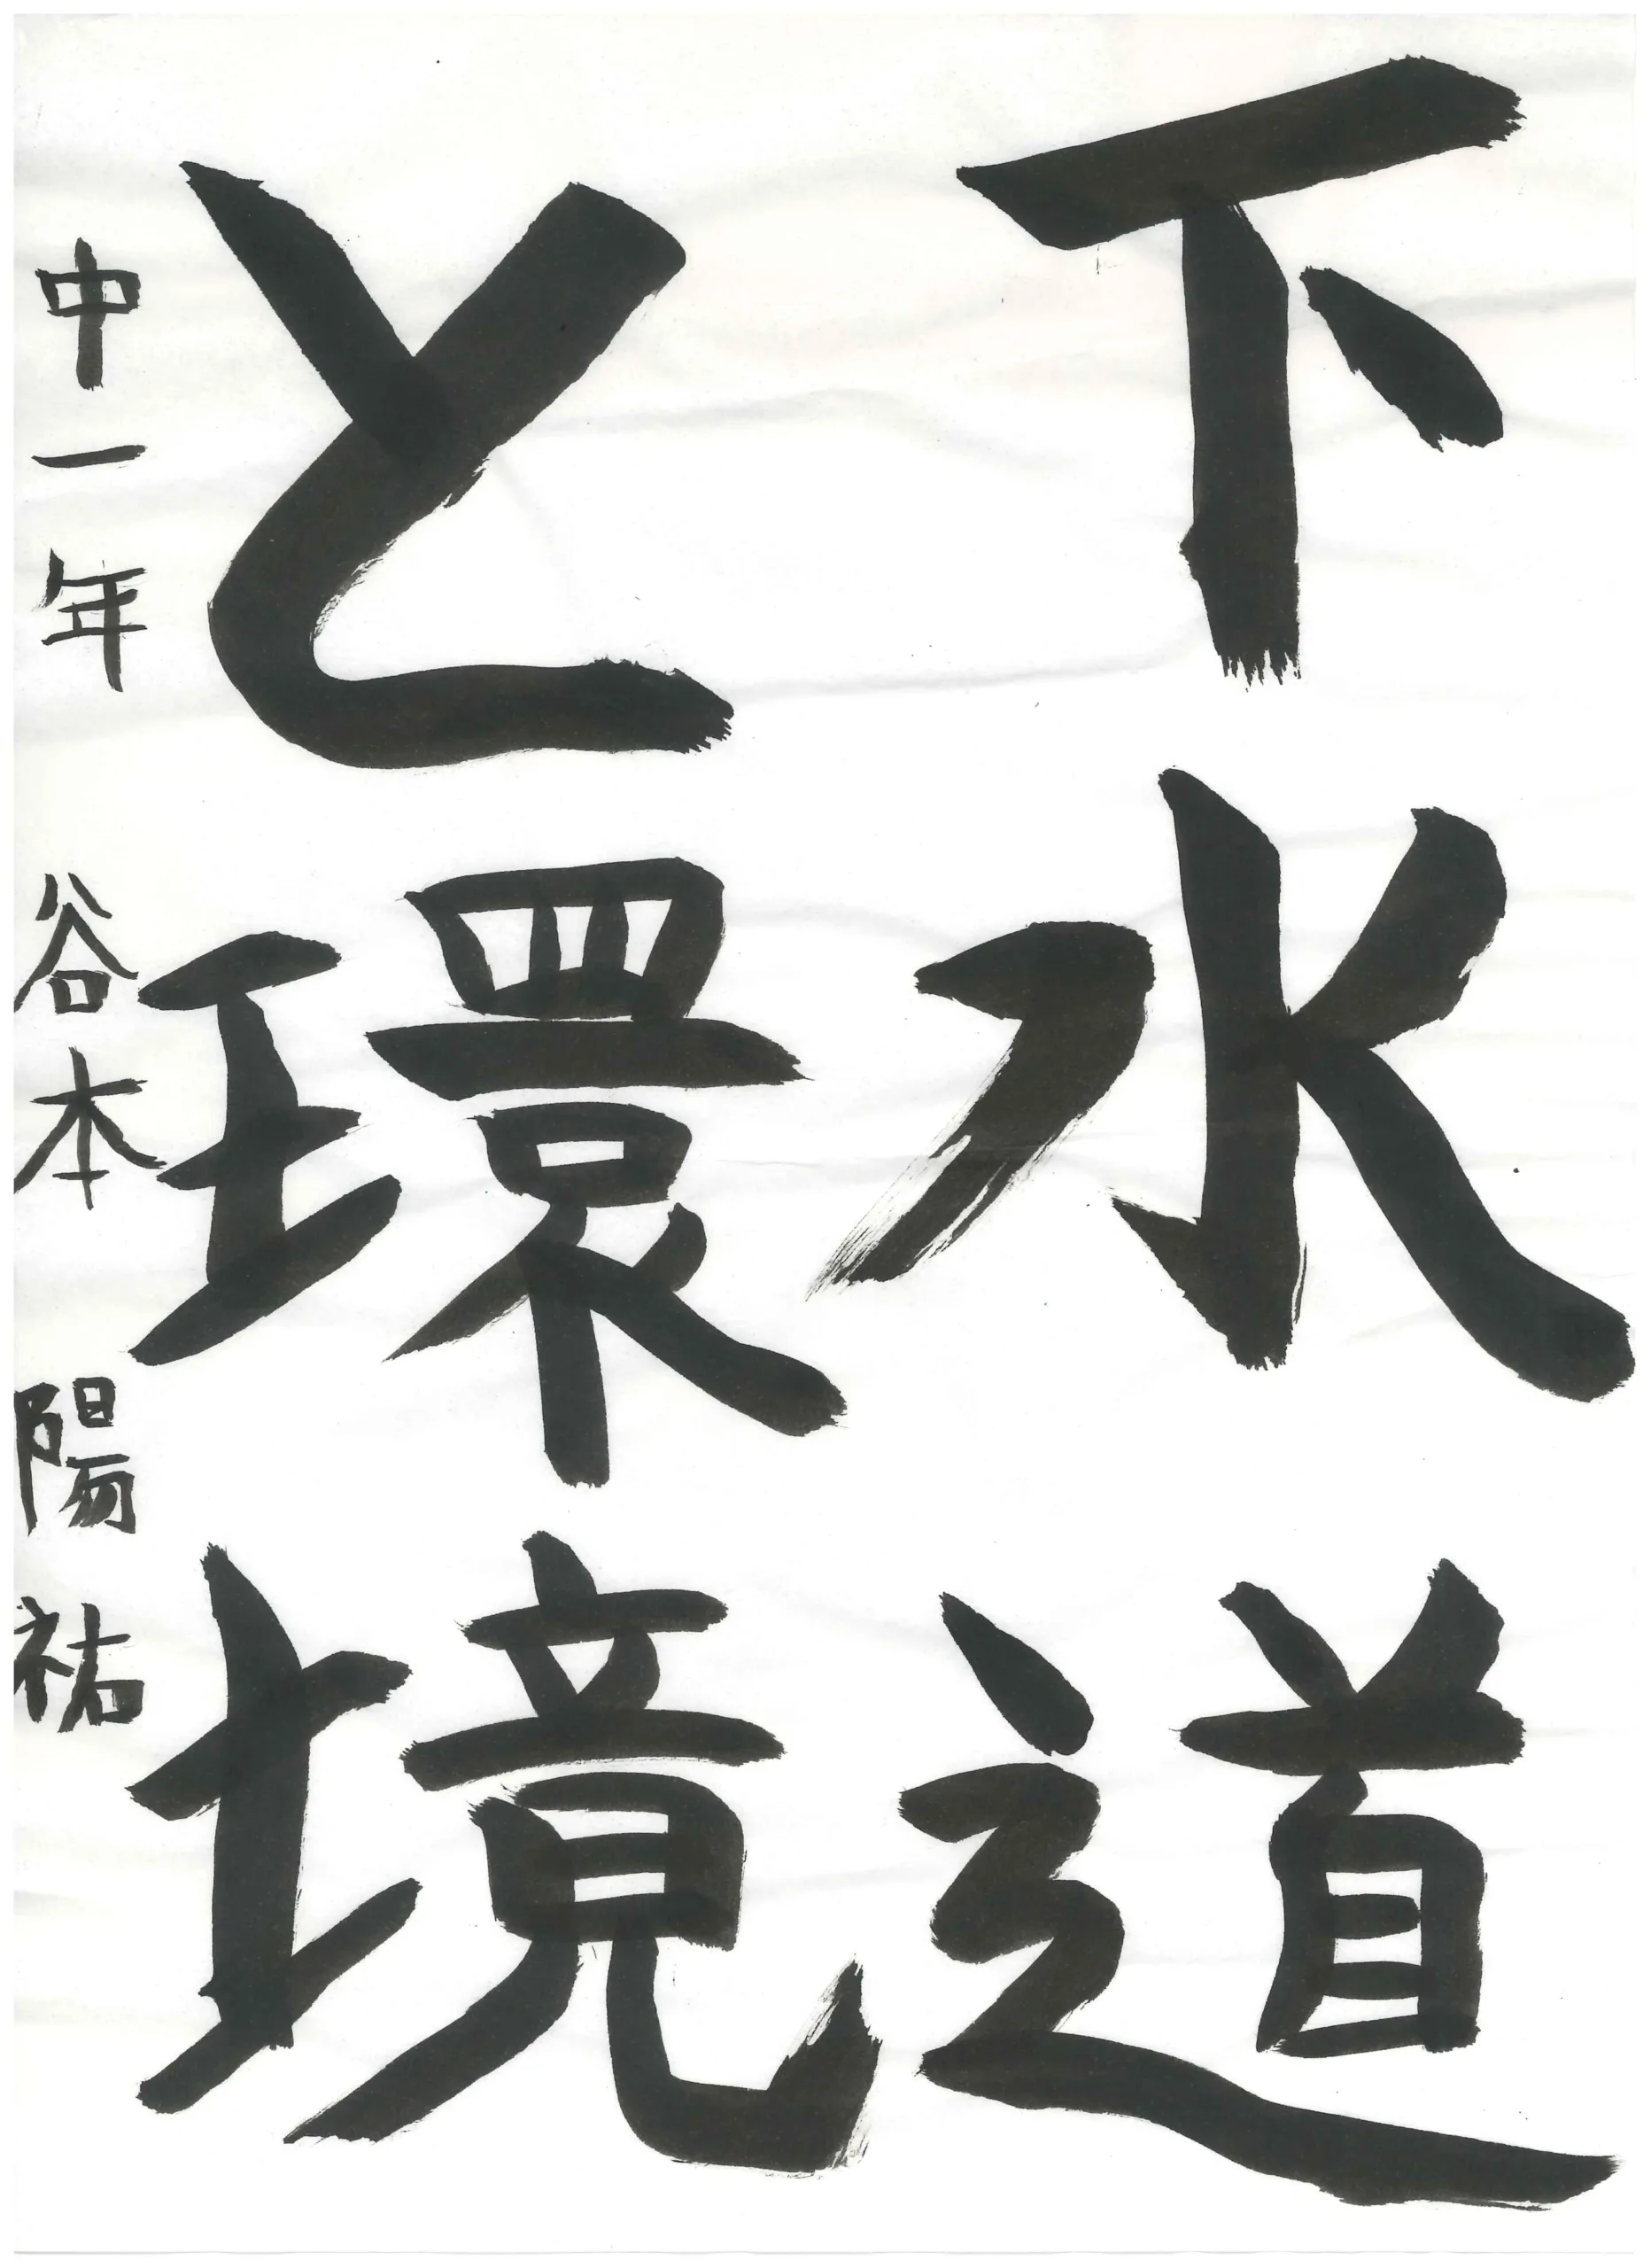 下水道
と環境
中一年 谷本 陽祐